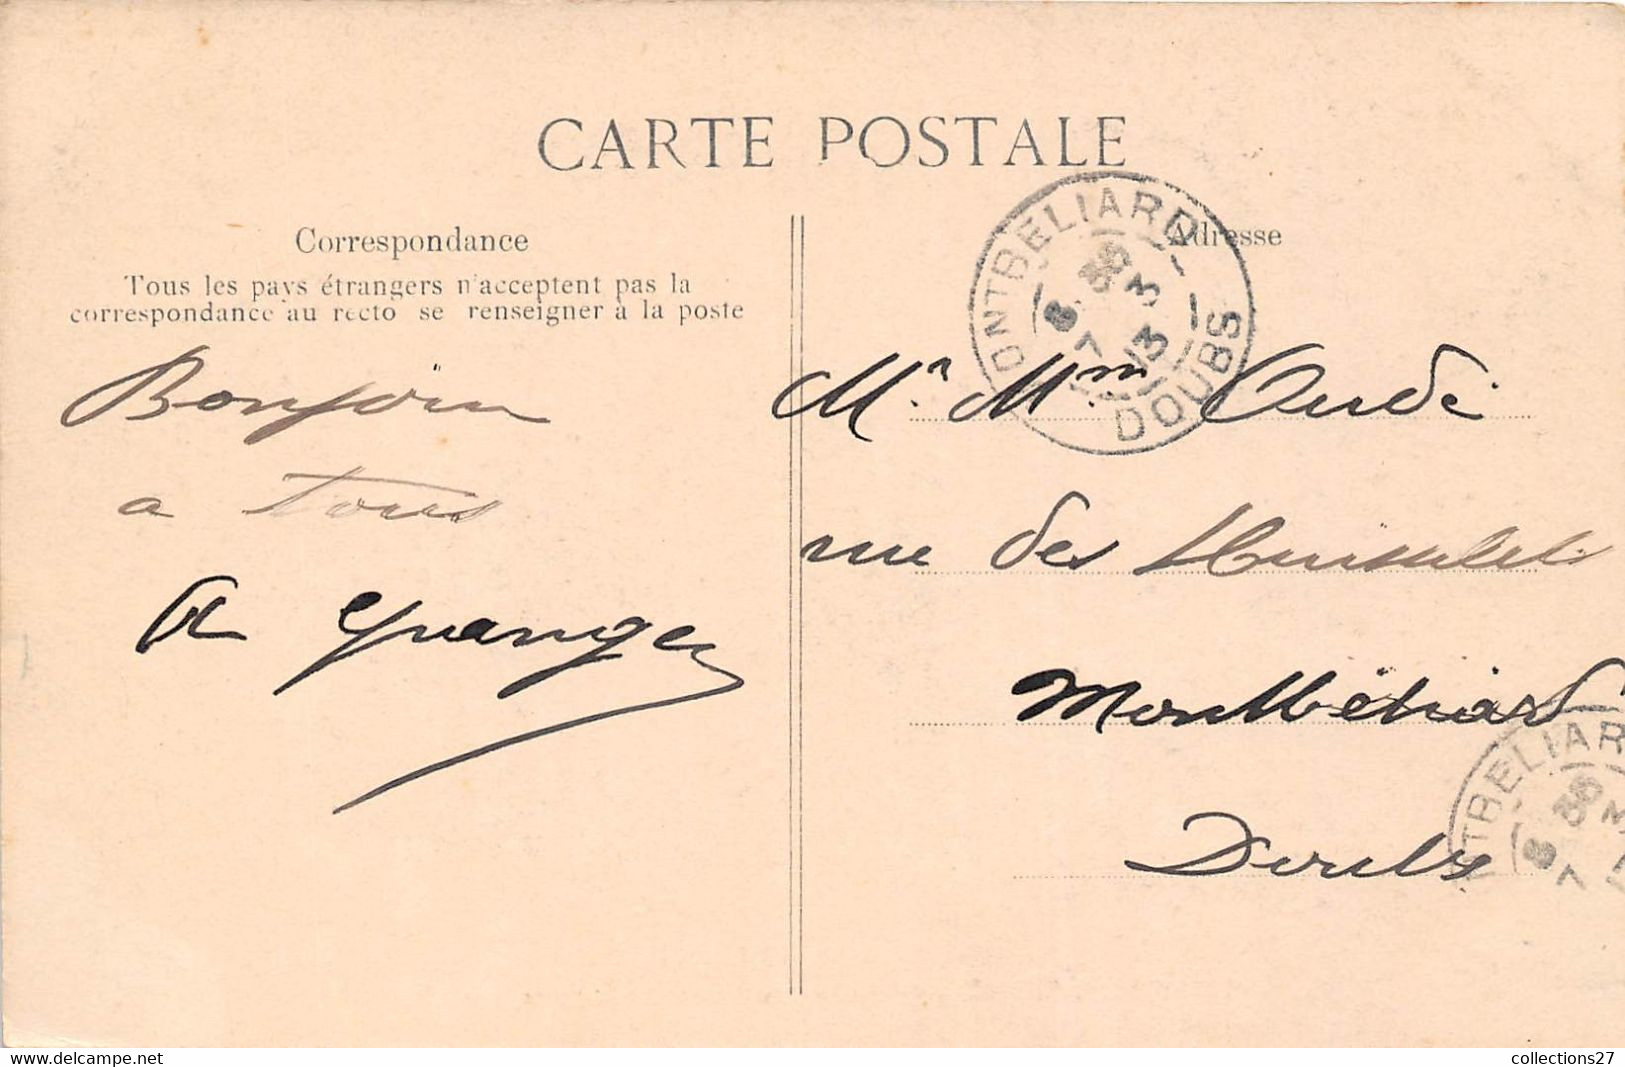 CARTE POSTALE
Correspondance
Tous les pays étrangers n'acceptent pas la
correspondance au recto se renseigner à la poste
Bonjour
a tous
A Granger
Adresse
MONTBÉLIARD
8 30
7 3
13
DOUBS
Mr Mm Oudé
rue des
Montbéliard
Doubs
NTBÉLIAR
8 30
7
collections27